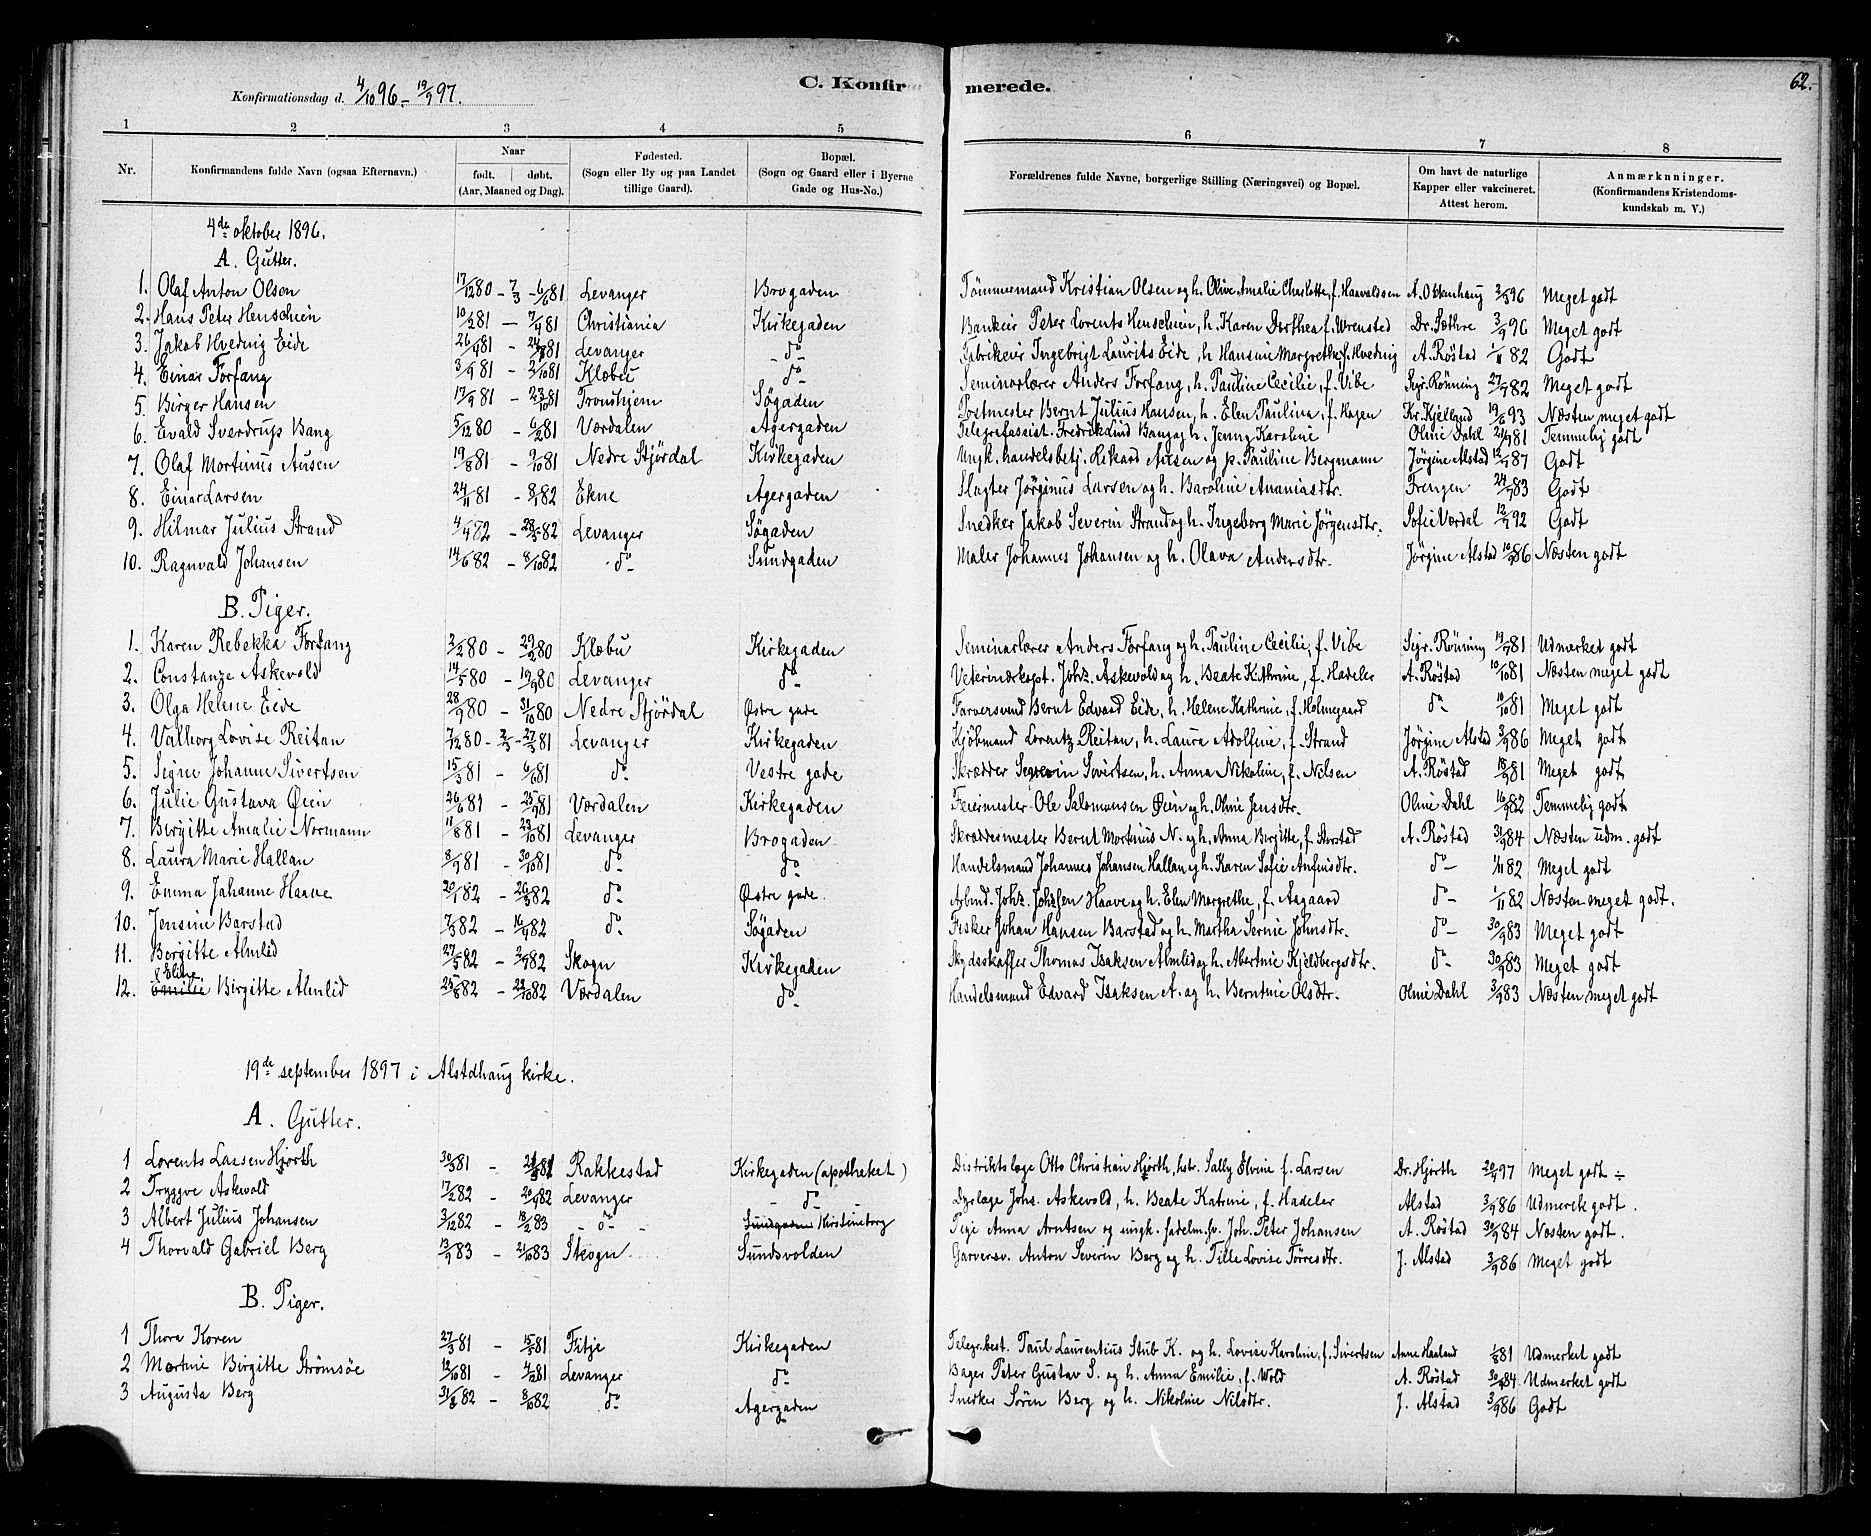 62.
C. Konfirmerede.
Konfirmationsdag d. 4/10 96 - 19/9 97.
1 2 3 4 5 6 7 8
Nr. Konfirmandens fulde Navn (ogsaa Efternavn.) Naar født. døbt. (Aar, Maaned og Dag). Fødested. (Sogn eller By og paa Landet tillige Gaard). Bopæl. (Sogn og Gaard eller i Byerne Gade og Hus-No.) Forældrenes fulde Navne, borgerlige Stilling (Næringsvei) og Bopæl. Om havt de naturlige Kapper eller vakcineret. Attest herom. Anmærknninger. (Konfirmandens Kristendomskundskab m. V.)
4de oktober 1896.
A. Gutter.
1. Olaf Anton Olsen 17/12 80 - 7/3 - 6/6 81 Levanger Brogaden Tømmermand Kristian Olsen og h. Olive Amalie Charlotte, f. Haavaldsen A. Okkenhaug 2/5 96 Meget godt
2. Hans Peter Henschien 10/2 81 - 7/4 81 Christiania Kirkegaden Bankier Peter Lorents Henschien, h. Karen Dorthea f. Wrensted Dr. Sæthre 3/9 96 Meget godt
3. Jakob Hveding Eide 26/4 81 - 24/8 81 Levanger - do - Fabrikeier Ingebrigt Laurits Eide, h Hansine Margrethe, f. Hveding A. Røstad 1/11 82 Godt
4. Einar Forfang 3/9 81 - 2/10 81 Klæbu do - Seminarlærer Anders Forfang, h. Pauline Cecilie, f. Vibe Sigr. Rönning 27/9 82 Meget godt
5. Birger Hansen 17/9 81 - 23/10 81 Tronhjem Søgaden Postmester Bernt Julius Hansen, h. Elen Paulina, f. Hagen Kr. Kjelland 19/6 93 Næsten meget godt
6. Evald Sverdrup Bang 5/12 80 - 6/2 81 Værdalen Agergaden Telegrafassist. Fredrik Lind Bang og h. Jenny Karoline Oline Dahl 21/9 81 Temmelig godt
7. Olaf Mortinus Ausen 19/8 81 - 9/10 81 Nedre Stjørdal Kirkegaden Ungk. handelsbetj. Rikard Ausen og p. Pauline Bergmann Jørgine Alstad 12/9 87 Godt
8. Einar Larsen 24/11 81 - 8/1 82 Ekne Agergaden Slagter Jørginus Larsen og h. Baroline Ananiasdtr. Frengen 24/9 83 Godt
9. Hilmar Julius Strand 4/4 82 - 28/5 82 Levanger Søgaden Snedker Jakob Severin Strand og h. Ingeborg Marie Jørgensdtr. Sofie Værdal 12/9 92 Godt
10. Ragnvald Johansen 14/6 82 - 8/10 82 - do - Sundgaden Maler Johannes Johansen og h. Olava Andersdtr. Jørgine Alstad 10/9 86 Næsten godt
B. Piger.
1. Karen Rebekka Forfang 2/2 80 - 29/2 80 Klæbu Kirkegaden Seminarlærer Anders Forfang og h. Pauline Cecilie, f. Vibe Sigr. Röning 19/9 81 Udmerket godt
2. Constanze Askevold 14/5 80 - 19/9 80 Levanger do - Veterinærkapt. Johs. Askevold og h. Beate Kathrine, f. Hadeler A. Røstad 10/10 81 Næsten meget godt
3. Olga Helene Eide 28/9 80 - 31/10 80 Nedre Stjørdal Østre gade Farversvend Bernt Edvard Eide, h. Helene Kathrine, f. Holmegaard do - 10/10 81 Meget godt
4. Valborg Lovise Reitan 7/12 80 - 2/3 - 27/3 81 Levanger Kirkegaden Kjøbmand Lorentz Reitan, h. Laura Adolfine, f. Strand Jørgine Alstad 3/9 86 Meget godt
5. Signe Johanne Sivertsen 15/3 81 - 6/6 81 do - Vestre gade Skrædder Severin Sivertsen, h. Anna Nikoline, f. Nilsen A. Røstad 18/9 81 Meget godt
6. Julie Gustava Øein 26/6 81 - 25/9 81 Værdalen Kirkegaden Feiermester Ole Salomonsen Øein og h. Oline Jensdtr. Oline Dahl 16/9 82 Temmelig godt
7. Birgitte Amalie Normann 11/8 81 - 23/10 81 Levanger Brogaden Skræddermester Bernt Mortinus N. og h. Anna Birgitte, f. Storstad A. Røstad 31/9 84 Næsten udm. godt
8. Laura Marie Hallan 8/9 81 - 30/10 81 do - do Handelsmand Johannes Johansen Hallan og h. Karen Sofie Anfinsdtr. do - 1/11 82 Meget godt
9. Emma Johanne Haave 20/1 82 - 26/3 82 do - Østre gade. Arbmd. Johs. Johssen Haave og h. Elen Margrethe, f. Aagaard do - 1/11 82 Næsten meget godt.
10. Jensine Barstad 7/3 82 - 16/4 82 do - Søgaden Fisker Johan Hansen Barstad og h. Martha Serine Johnsdtr. do - 30/9 83 Meget godt
11. Borgitte Almlid 27/5 82 - 2/7 82 Skogn Kirkegaden Skydsskaffer Thomas Isaksen Almlid og h. Albertine Kjeldbergsdtr. do - 30/9 83 Meget godt
12. Eline Birgitte Almlid 25/8 82 - 22/10 82 Værdalen do - Handelsmand Edvard Isaksen A. og h. Berntine Olsdtr. Oline Dahl 3/9 83 Næsten meget godt
19de september 1897 i Alstdhaug kirke.
A. Gutter.
1 Lorents Lassen Hjorth 30/3 81 - 21/8 81 Rakkestad Kirkegaden (apotheket) Distriktslæge Otto Christian Hjorth, hstr. Sally Elvine f. Larsen Dr. Hjorth 20/9 97 Meget godt ÷
2 Tryggve Askevold 17/2 82 - 20/9 82 Levanger - do - Dyrlæge Johs. Askevold, h. Beate Katrine, f. Hadeler Alstad 3/9 86 Udmerk godt.
3 Albert Julius Johansen 3/12 82 - 18/2 83 - do - Sundgaden Kirstineborg Pige Anna Arntsen og ungk. Joh. Peter Johansen A. Røstad 30/9 84 Næsten godt.
4 Thorvald Gabriel Berg 13/9 83 - 21/10 83 Skogn Sundsvolden Garversv. Anton Severin Berg og h. Tille Lovise Torresdtr. J. Alstad 3/9 86 Meget godt
B. Piger.
1 Thora Koren 27/3 81 - 15/5 81 Fitje Kirkegaden Telegr.best. Paul Laurentius Stub K. og h. Lovise Karoline, f. Sivertsen Anne Haaland 1/8 81 Udmerket godt
2 Martine Birgitte Strömsöe 12/10 81 - 4/12 81 Levanger do - Bager Peter Gustav S. og h. Anna Emilie, f. Wold A. Røstad 30/9 84 Udmerket godt
3 Augusta Berg 31/8 82 - 8/10 82 do - Agergaden Snerker Søren Berg og h. Nikoline Nilsdtr. J. Alstad 3/9 86 Godt